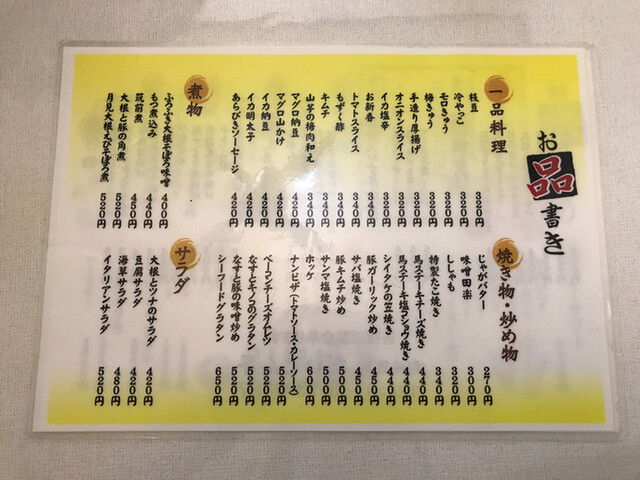 お品書き
一品料理
枝豆 320円
冷やっこ 320円
モロきゅう 320円
梅きゅう 320円
手造り厚揚げ 320円
オニオンスライス 320円
イカ塩辛 320円
お新香 320円
トマトスライス 340円
もずく酢 340円
キムチ 340円
山芋の梅肉和え 340円
マグロ納豆 420円
マグロ山かけ 420円
イカ納豆 420円
イカ明太子 420円
あらびきソーセージ 420円
煮物
ふろふき大根そぼろ味噌 400円
もつ煮込み 440円
筑前煮 450円
大根と豚の角煮 520円
月見大根えびそぼろ煮 520円
焼き物・炒め物
じゃがバター 270円
味噌田楽 300円
ししゃも 320円
特製たこ焼き 340円
馬ステーキチーズ焼き 440円
馬ステーキ塩コショウ焼き 440円
シイタケの笠焼き 440円
豚ガーリック炒め 450円
サバ塩焼き 450円
豚キムチ炒め 500円
サンマ塩焼き 500円
ホッケ 600円
ナンピザ(トマトソース・カレーソース) 520円
ベーコンチーズオムレツ 520円
なすとキノコのグラタン 520円
なすと豚の味噌炒め 520円
シーフードグラタン 650円
サラダ
大根とツナのサラダ 420円
豆腐サラダ 420円
海草サラダ 480円
イタリアンサラダ 520円